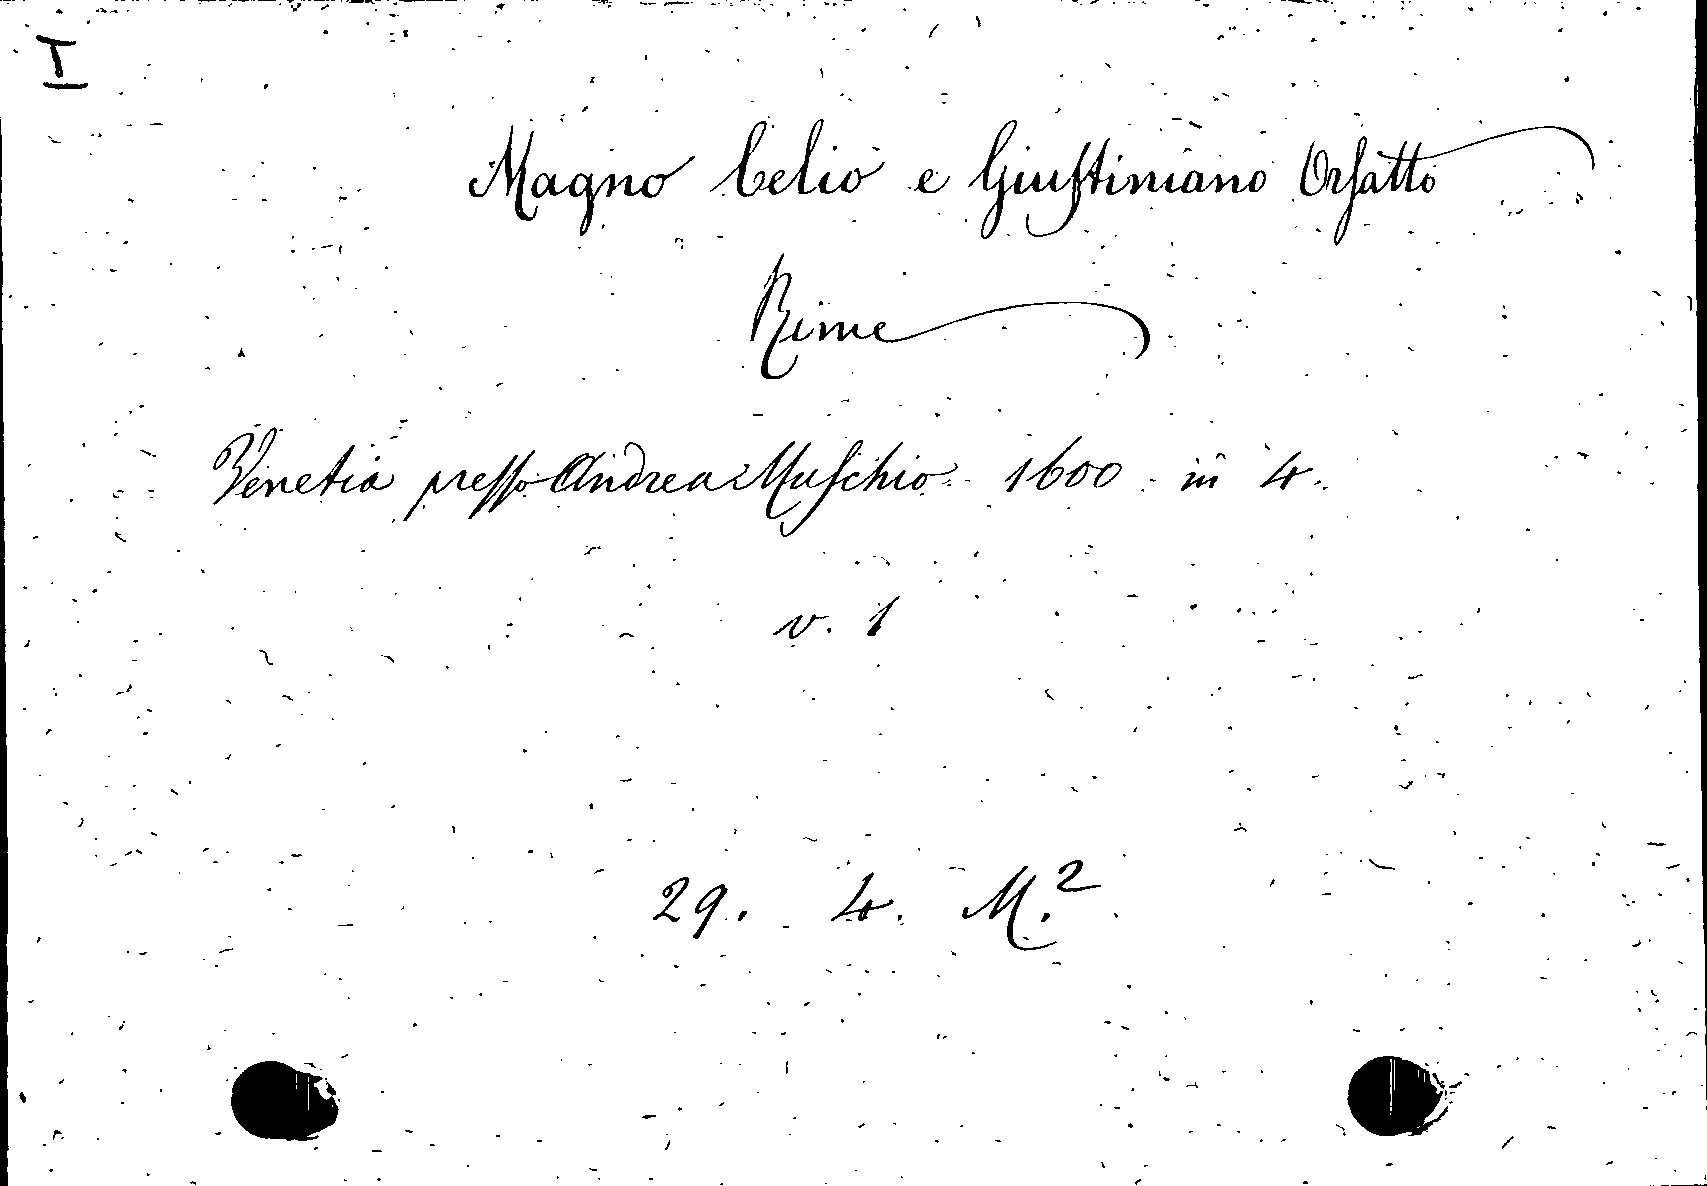 I
Magno Celio e Giustiniano Orsatto
Rime
Venetia presso Andrea Muschio 1600 in 4.
v. 1
29. 4. M.²